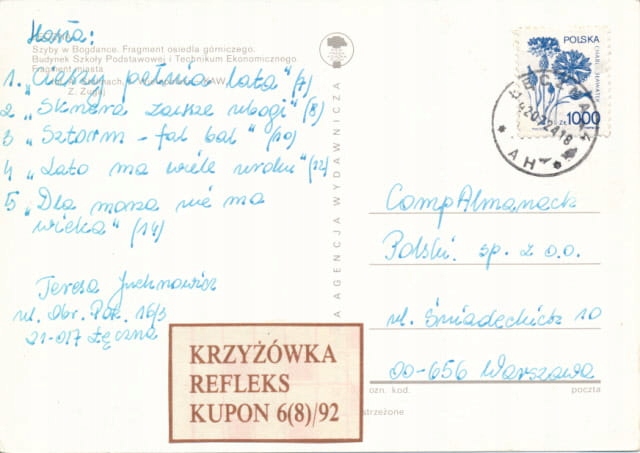 Hasła:
Szyby w Bogdance. Fragment osiedla górniczego.
Budynek Szkoły Podstawowej i Technikum Ekonomicznego
Fragment miasta
1. „Cieszy pełnia lata" (7)
Z. Żugaj
2 „Sknera zawsze ubogi" (8)
3 „Sztorm - fal bal" (10)
4 „Lato ma wiele uroku" (12)
5 „Dla morza nie ma
wieka" (14)
Teresa Juchnowicz
ul. Obr. Pok. 16/3
21-017 Łęczna
KRZYŻÓWKA
REFLEKS
KUPON 6(8)/92
A AGENCJA WYDAWNICZA
POLSKA
CHABER BŁAWATEK
ZŁ 1000
ŁĘCZNA
420722418
AH
CompAlmanach
Polski. sp. z o.o.
ul. Śniadeckich 10
00-656 Warszawa
ozn. kod.
poczta
strzeżone